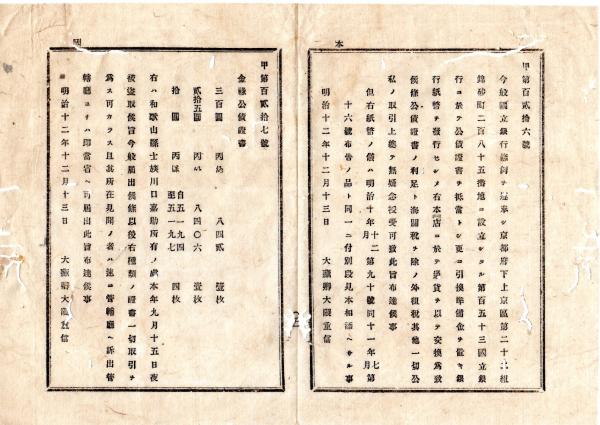 本
甲第百貳拾六號
今般國立銀行條例ヲ遵奉シ京都府下上京區第二十二組
錦砂町二百八十五番地ニ設立シタル第百五十三國立銀
行ニ於テ公債證書ヲ抵當トシ更ニ引換準備金ヲ置キ銀
行紙幣ヲ發行セシメ右本店ニ於テ通貨ヲ以テ交換爲致
候條公債證書ノ利足ト海關税ヲ除ノ外租税其他一切公
私ノ取引上總テ無疑念授受可致此旨布達候事
但右紙幣ノ儀ハ明治十年十二月第九十號同十一年七月第
十六號布告ノ品ト同一ニ付別段見本相添ヘサル事
明治十二年十二月十三日 大藏卿大隈重信
甲第百貳拾七號
金祿公債證書
三百圓 丙 八四貳 壹枚
貳拾五圓 丙 八四〇六 壹枚
拾圓 丙 自五一九四 至五一九七 四枚
右ハ和歌山縣士族川口嘉助所有ノ處本年九月十五日夜
被盜取候旨今般屆出候條以後右種類ノ證書一切取引ヲ
爲ス可カラス且其所在見聞ノ者ハ速ニ管轄廳ヘ訴出管
轄廳ヨリハ即當省ヘ可屆出此旨布達候事
明治十二年十二月十三日 大藏卿大隈重信